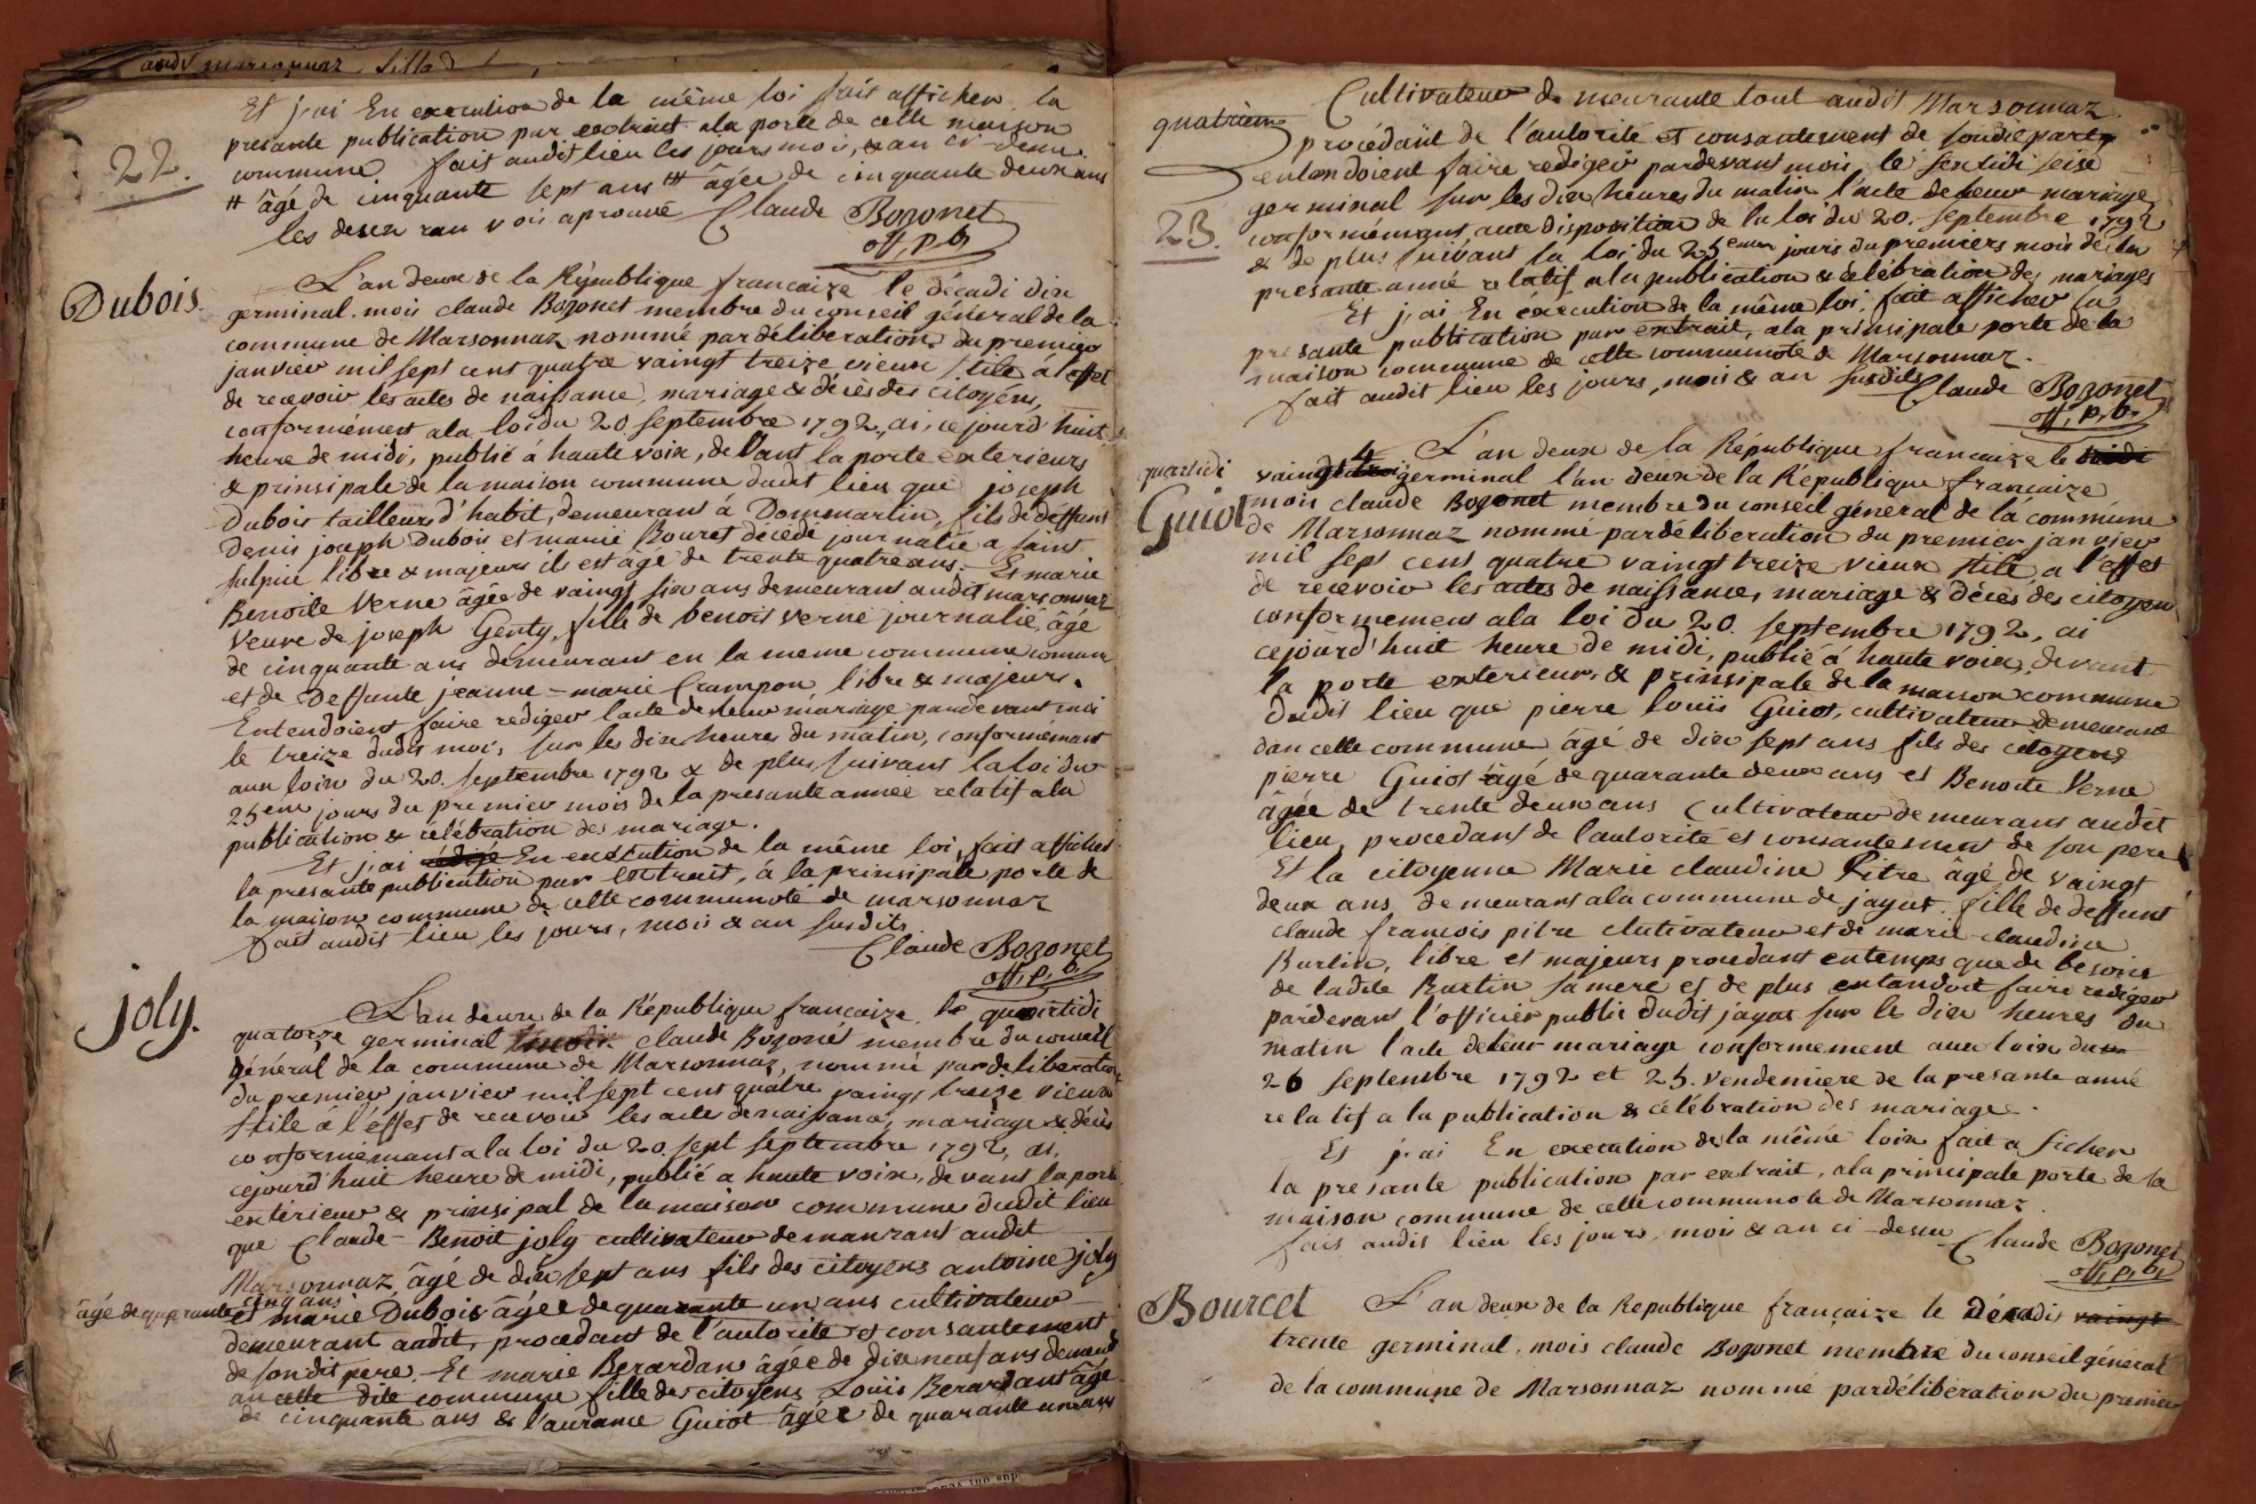 audt marsonnaz, fille d
Et j,ai En execution de la même loi fait afficher la
presante publication par extrait ala porte de cette maison
commune fait audit lieu les jours mois, & an ci-desus
22.
# âgé de cinquante sept ans ## âgée de cinquante deux ans
les deux ranvois aprouvé Claude Bozonet
off, p, b,
Dubois.
L'an deux de la République francaize le décadi dix
germinal. moi claude Bozonet membre du conseil géneral de la
commune de Marsonnaz nommé par déliberation du premier
janvier mil sept cent quatre vaingt treize vieux stile à l'effet
de recevoir les actes de naissance, mariage & décès des citoyens,
conformément ala loi du 20 septembre 1792, ai, cejourd'huit
heure de midi, publié à haute voix, devant la porte exterieurs
& prinsipale de la maison commune dudit lieu que joseph
Dubois tailleurs d'habit, demeurant à Dommartin, fils de deffunt
Denis joseph Dubois et marie Bouret décédé journalié a saint
Sulpice libre & majeurs il est âgé de trente quatre ans. Et marie
Benoite Verne âgée de vaingt six ans demeurant audit marsonnaz
Veuve de joseph Genty, fille de benoit verne journalié, âgé
de cinquante ans demeurant en la meme commune comune
et de Deffunte jeanne-marie Crampon, libre & majeurs.
Entendoient faire rediger lacte de leur mariage pardevant moi
le treize dudit mois, sur les dix heures du matin, conformémant
aux loix du 20. septembre 1792 & de plus, suivant la loi du
25eme jours du premier mois de la presante année relatif ala
publication & célébration des mariage.
Et j,ai rédigé En execution de la même loi, fait afficher
la presante publication par extrait, à la prinsipale porte de
la maison commune de cette communoté de marsonnaz
fait audit lieu les jours, mois & an susdits
Claude Bozonet
off, p, b,
joly.
L'an deux de la République francaize, le quartidi
quatorze germinal moi claude Bozonet membre du conseil
général de la commune de Marsonnaz, nommé par déliberation
du premier janvier mil sept cent quatre vaingt treize vieux
stile à l'éffet de recevoir les acte de naissance, mariage & décès
conformémant a la loi du 20. sept septembre 1792, ai,
cejourd'huit heure de midi, publié a haute voix, devant la porte
extérieur & prinsipal de la maison commune dudit lieu
que Claude-Benoit joly cultivateur demeurant audit
Marsonnaz âgé de dix sept ans fils des citoyens antoine joly
âgé de quarante cinq ans
et marie Dubois âgée de quarante un ans cultivateur
demeurant audit, procedant de l'autorité et consantement
de sondit pere. Et marie Berardan âgée de dix neuf ans demeurt
au cette dite commune fille des citoyens Louis Berardant âgé
de cinquante ans & l'aurance Guiot âgée de quarante un ans
Cultivateur demeurante tout audit Marsonnaz.
quatrième
procédant de l'autorité et consantement de
entendoient faire rediger pardevant moi, le sextidi seise
germinal sur les dix heures du matin l'acte de leur mariage,
23.
conformémant aux disposition de la loi du 20. septembre 1792
& de plus suivant la loi du 25eme jours du premiers mois de la
presante anné relatif ala publication & célébration des mariages
Et j,ai En éxécution de la même loi, fait afficher la
presante publication par extrait, ala prinsipale porte de la
maison commune de cette communoté de Marsonnaz.
fait audit lieu les jours, mois & an susdits Claude Bozonet
off, p, b,
quartidi
L'an deux de la République francaize le tridi
4
vaingt trois germinal l'an deux de la République francaize
Guiot
moi claude Bozonet membre du conseil géneral de la commune
de Marsonnaz nommé par déliberation du premier janvier
mil sept cent quatre vaingt treize vieux stile a l'effet
de recevoir les actes de naissance, mariage & décès des citoyen,
conformement ala loi du 20. septembre 1792, ai
cejourd'huit heure de midi, publié à haute voix, devant
la porte exterieur, & prinsipale de la maison commune
dudit lieu que pierre louis Guiot, cultivateur demeurant
dan cette commune âgé de dix sept ans fils des citoyens
pierre Guiot âgé de quarante deux ans et Benoite Verne
âgée de trente deux ans Cultivateur demeurant audit
lieu, procedant de l'autorité et consantement de son pere
Et la citoyenne Marie claudine Pitre âgé de vaingt
deux ans demeurant ala commune de jayat. fille de deffunt
claude francois pitre clutivateur et de marie-claudine
Burtin, libre et majeurs procedant entemps que de besoin
de ladite Burtin sa mere et de plus entandoit faire rediger
pardevant l'officier public dudit jayat sur le dix heures du
matin l'acte de leur mariage conformement aux loix du
26 septembre 1792 et 25. vendemiere de la presante anné
relatif a la publication & célébration des mariage.
Et j,ai En execution de la même loix fait aficher
la presante publication par extrait, ala principale porte de la
maison commune de cette communoté de Marsonnaz.
fait audit lieu les jours, mois & an ci-desus Claude Bozonet
off, p, b,
Bourcet
L'an deux de la Republique françaize le Décadi vaingt
trente germinal. moi claude Bozonet membre du conseil général
de la commune de Marsonnaz nommé par déliberation du premier